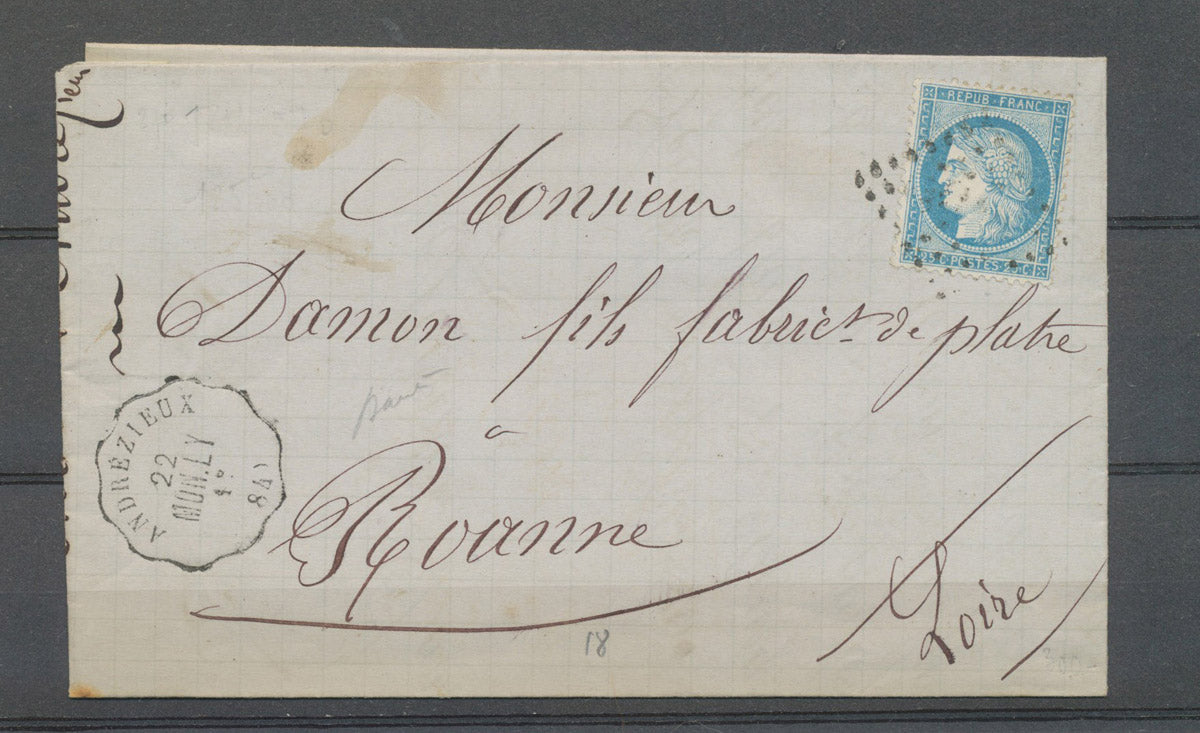 · REPUB · FRANC ·
25 C · POSTES · 25 C
Monsieur
Damon fils fabrict. de platre
à
Roanne
Loire
ANDRÉZIEUX
22
MON.LY
1°
84)
18